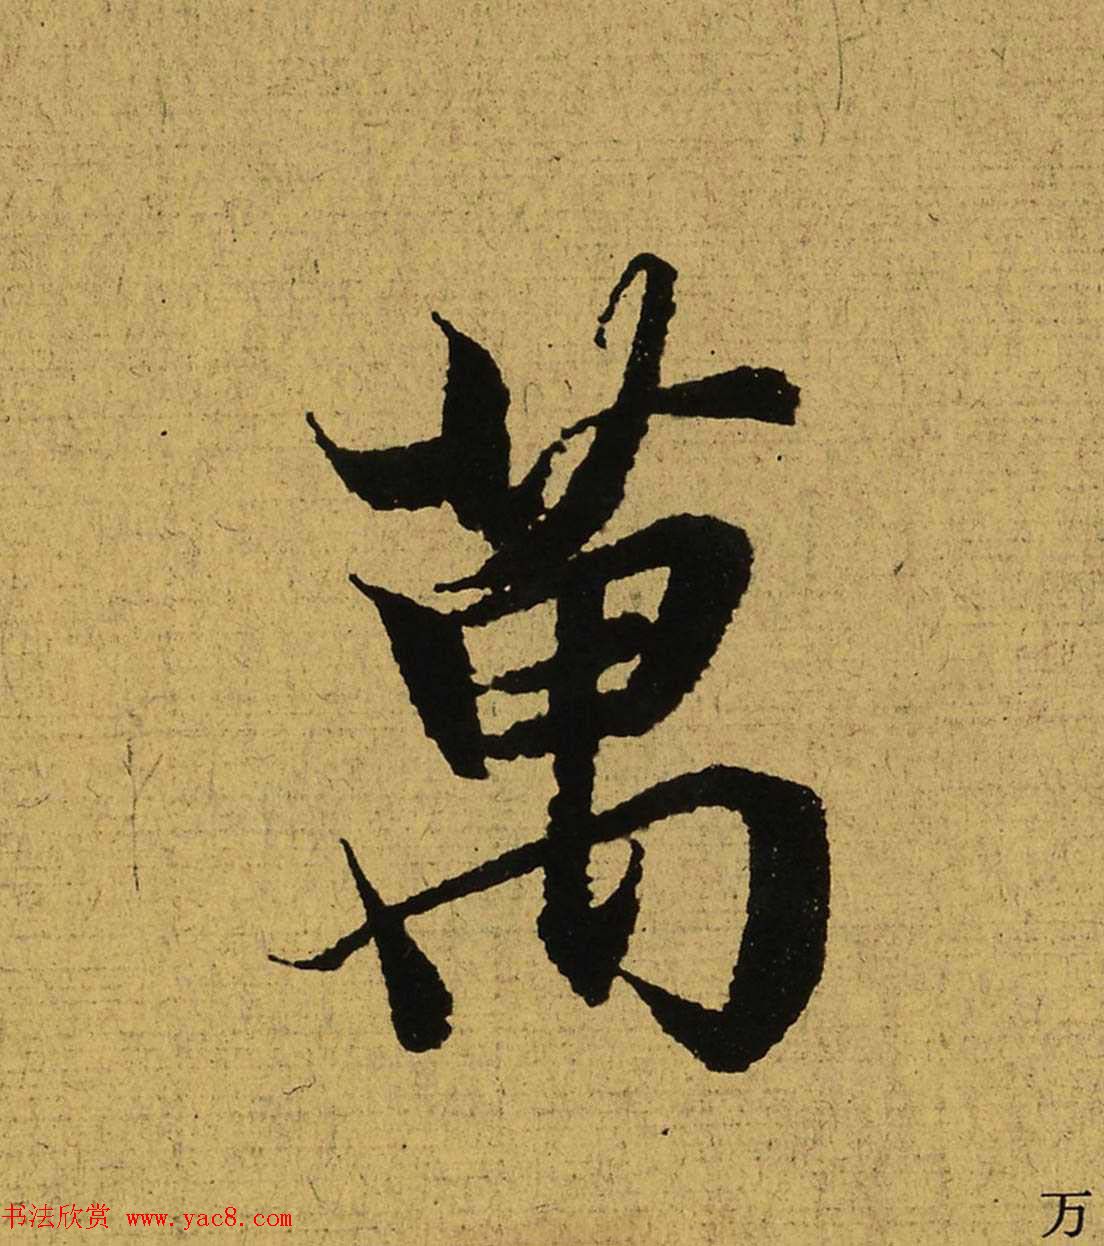 萬
万
书法欣赏 www.yac8.com